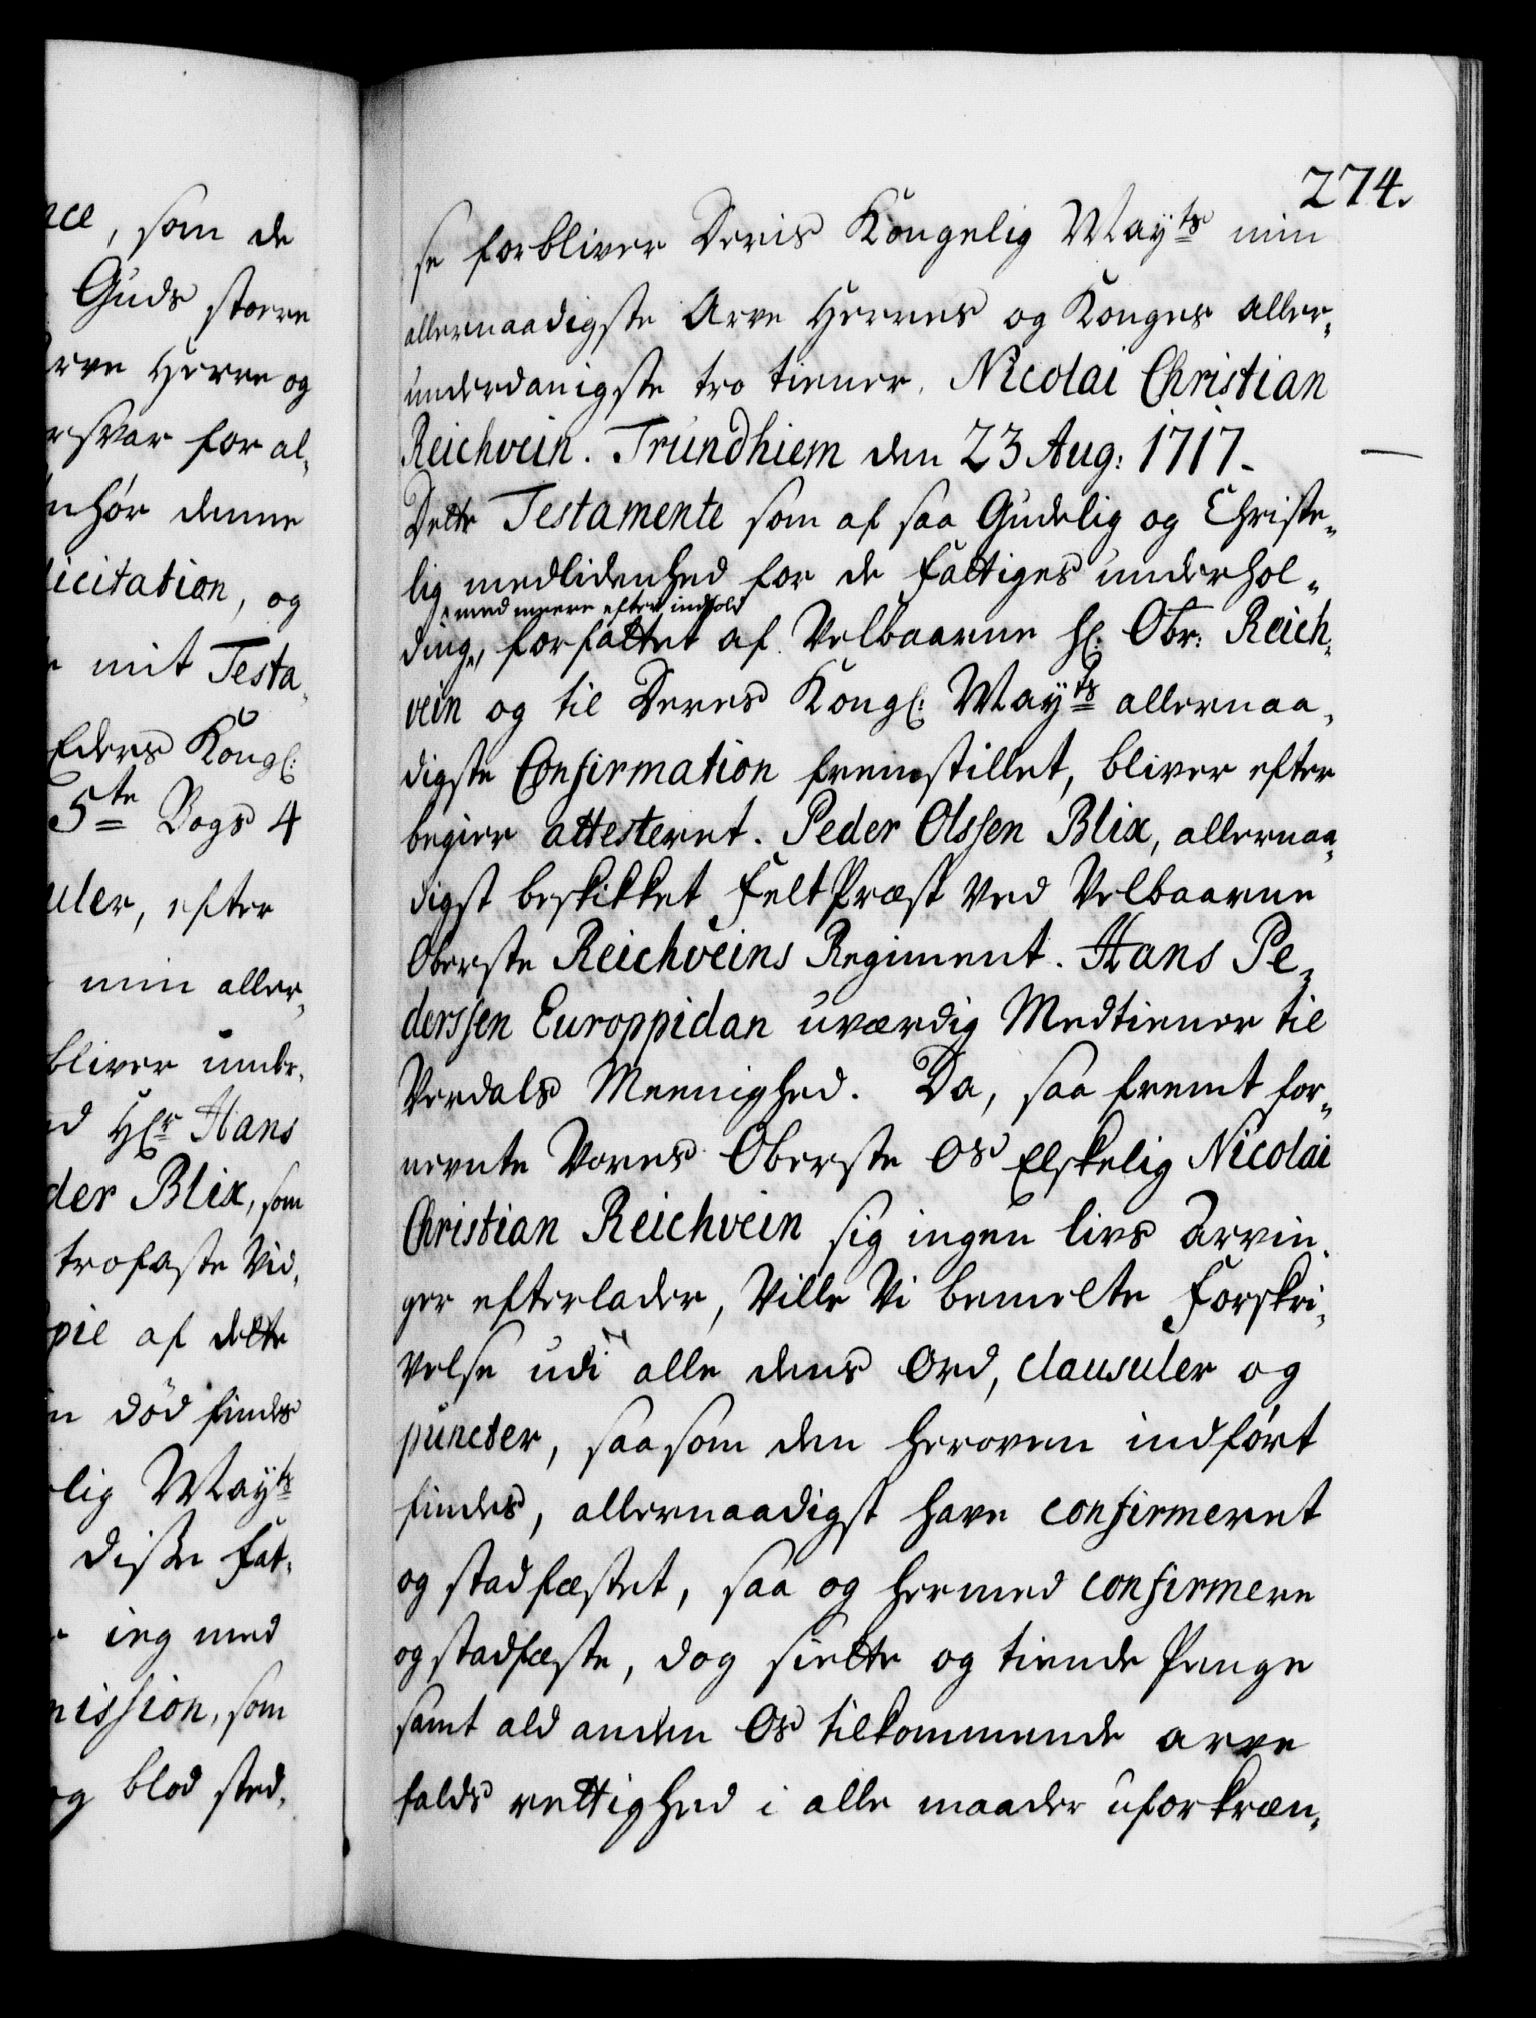 nce, som de
Guds storre
Arve Herre og
rsvar for al-
nhør denne
licitation, og
mit Testa-
Eders Kongl:
5te Bogs 4
uler, efter
min aller-
bliver under-
d Hr Hans
der Blix, som
trofaste Vid-
pie af dette
n död findes
lig Mayts
disse fat-
ieg med
nission, som
og blod sted-
274.
se forbliver Deris Kongelig Mayts min
allernaadigste Arve Herres og Konges aller-
underdanigste tro tiener. Nicolai Christian
Reichvein. Trundhiem den 23 Aug: 1717.
Dette Testamente som af saa Gudelig og Christe-
lig medlidenhed for de fattiges underhol-
med meere efter indhold
ding, forfattet af Velbaarne H: Obr: Reich-
vein og til Deres Kongl: Mayts allernaa-
digste Confirmation fremstillet, bliver efter
begier attesteret. Peder Olssen Blix, allernaa-
digst beskikket feltPræst ved Velbaarne
Oberste Reichveins Regiment. Hans Pe-
derssen Europpidan uværdig Medtiener til
Verdals Meenighed. Da, saa fremt for-
nevnte Vores Oberste Os Elskelig Nicolai
Christian Reichvein sig ingen livs Arvin-
ger efterlader, Ville Vi bemelte Forskri-
velse udi alle dens Ord, clausuler og
puncter, saasom den herofven indført
findes, allernaadigst have confirmeret
og stadfæstet, saa og hermed confirmere
og stadfæste, dog siette og tiende Penge
samt ald anden Os tilkommende arve
falds rettighed i alle maader uforkræn-